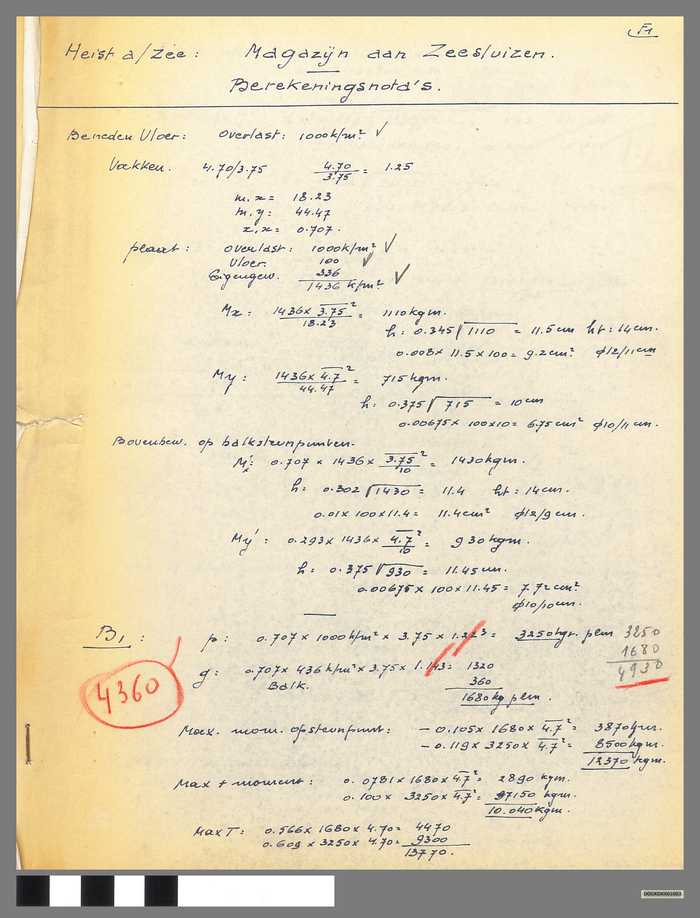 F1
Heist a/Zee : Magazijn aan Zeesluizen.
Berekeningsnota's.
Beneden Vloer : Overlast : 1000k/m² ✓
Vakken. 4.70/3.75 4.70/3.75 = 1.25
m.x = 18.23
m.y = 44.47
z.x = 0.707.
plaat : overlast : 1000k/m² ✓
Vloer. 100 ✓
Eigengew. 336
1436 k/m² ✓
Mx : 1436 x 3.75² / 18.23 = 1110 kgm.
h : 0.345 √1110 = 11.5 cm ht : 14 cm.
0.008 x 11.5 x 100 = 9.2 cm² φ12/11 cm
My : 1436 x 4.7² / 44.47 = 715 kgm.
h : 0.375 √715 = 10 cm
0.00675 x 100 x 10 = 6.75 cm² φ10/11 cm.
Bovenbew. op balksteunpunten.
M'x : 0.707 x 1436 x 3.75² / 10 = 1430 kgm.
h : 0.302 √1430 = 11.4 ht = 14 cm.
0.01 x 100 x 11.4 = 11.4 cm² φ12/9 cm.
My' : 0.293 x 1436 x 4.7² / 10 = 930 kgm.
h : 0.375 √930 = 11.45 cm.
0.00675 x 100 x 11.45 = 7.72 cm²
φ10/10 cm.
B1 : p : 0.707 x 1000 k/m² x 3.75 x 1.223 = 3250 kgr. plm 3250
1680
4930
g : 0.707 x 436 k/m² x 3.75 x 1.143 = 1320
4360
Balk. 360
1680 kg plm.
Max. mom. op steunpunt : - 0.105 x 1680 x 4.7² = 3870 kgm.
- 0.119 x 3250 x 4.7² = 8500 kgm.
12370 kgm.
Max + moment : 0.0781 x 1680 x 4.7² = 2890 kgm.
0.100 x 3250 x 4.7² = 7150 kgm.
10.040 kgm.
Max T : 0.566 x 1680 x 4.70 = 4470
0.609 x 3250 x 4.70 = 9300
13770.